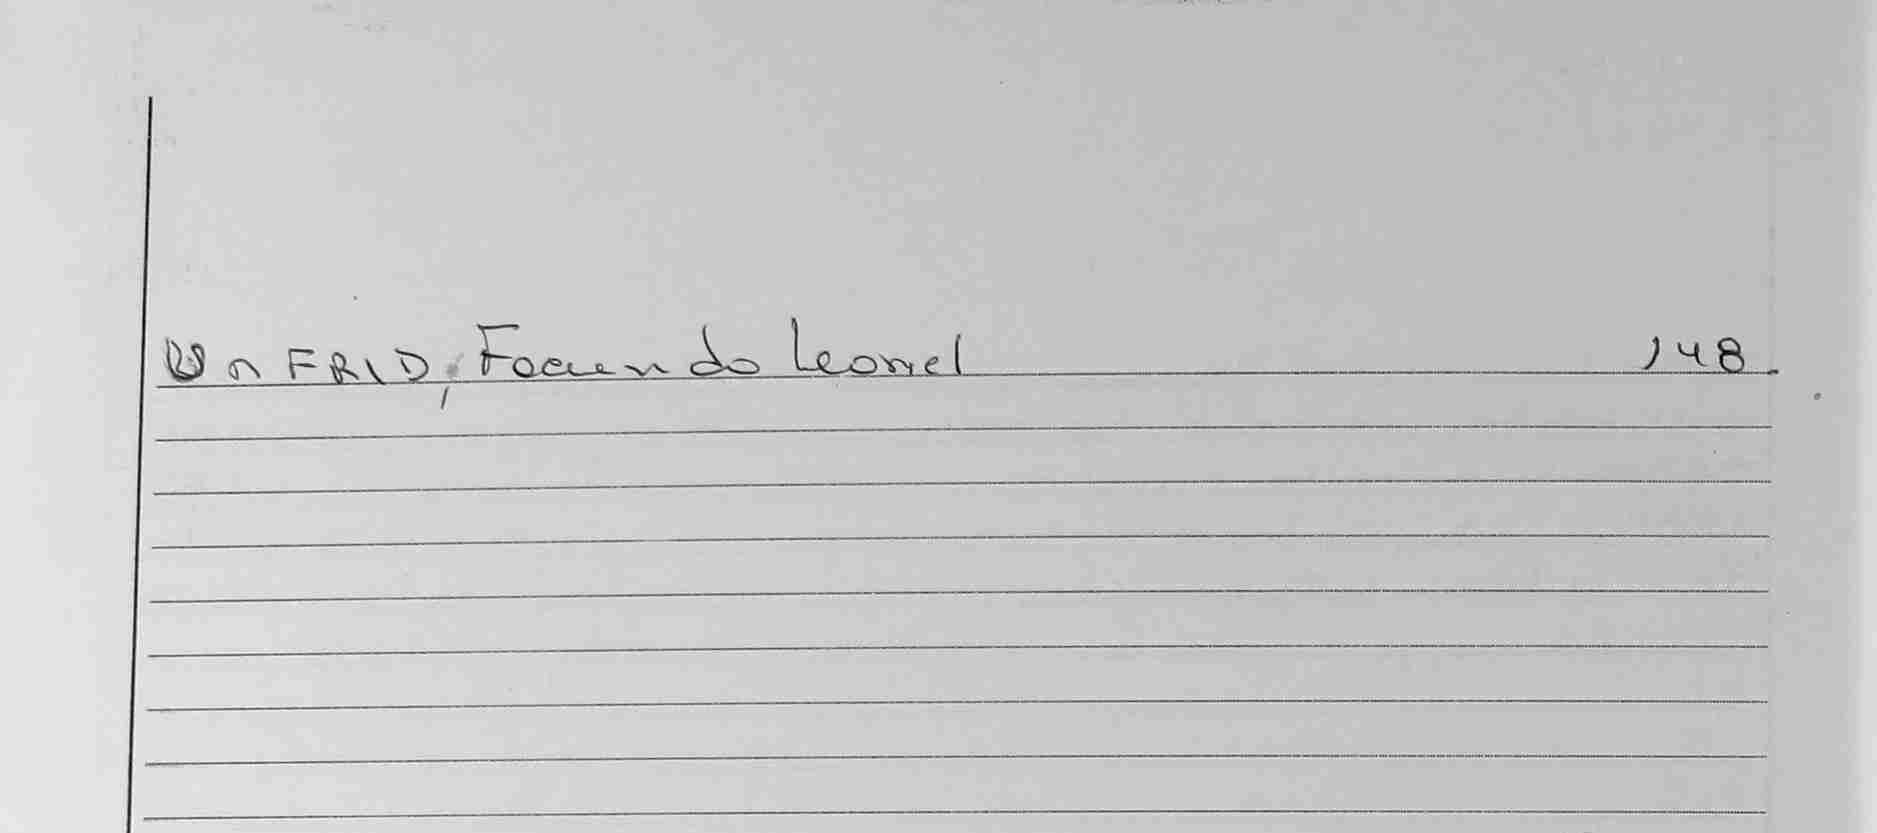 UnFRID, Facundo Leonel 148